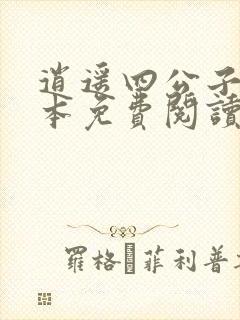 逍遥四公子
本免費閱讀
羅格·菲利普